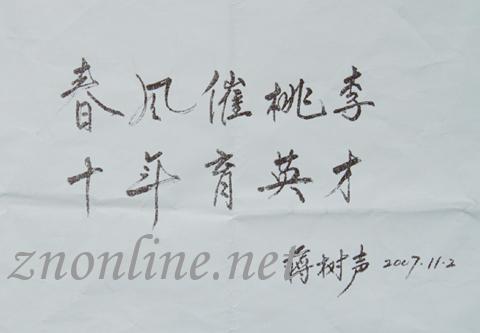 春风催桃李
十年育英才
znonline.net
蒋树声 2007.11.2